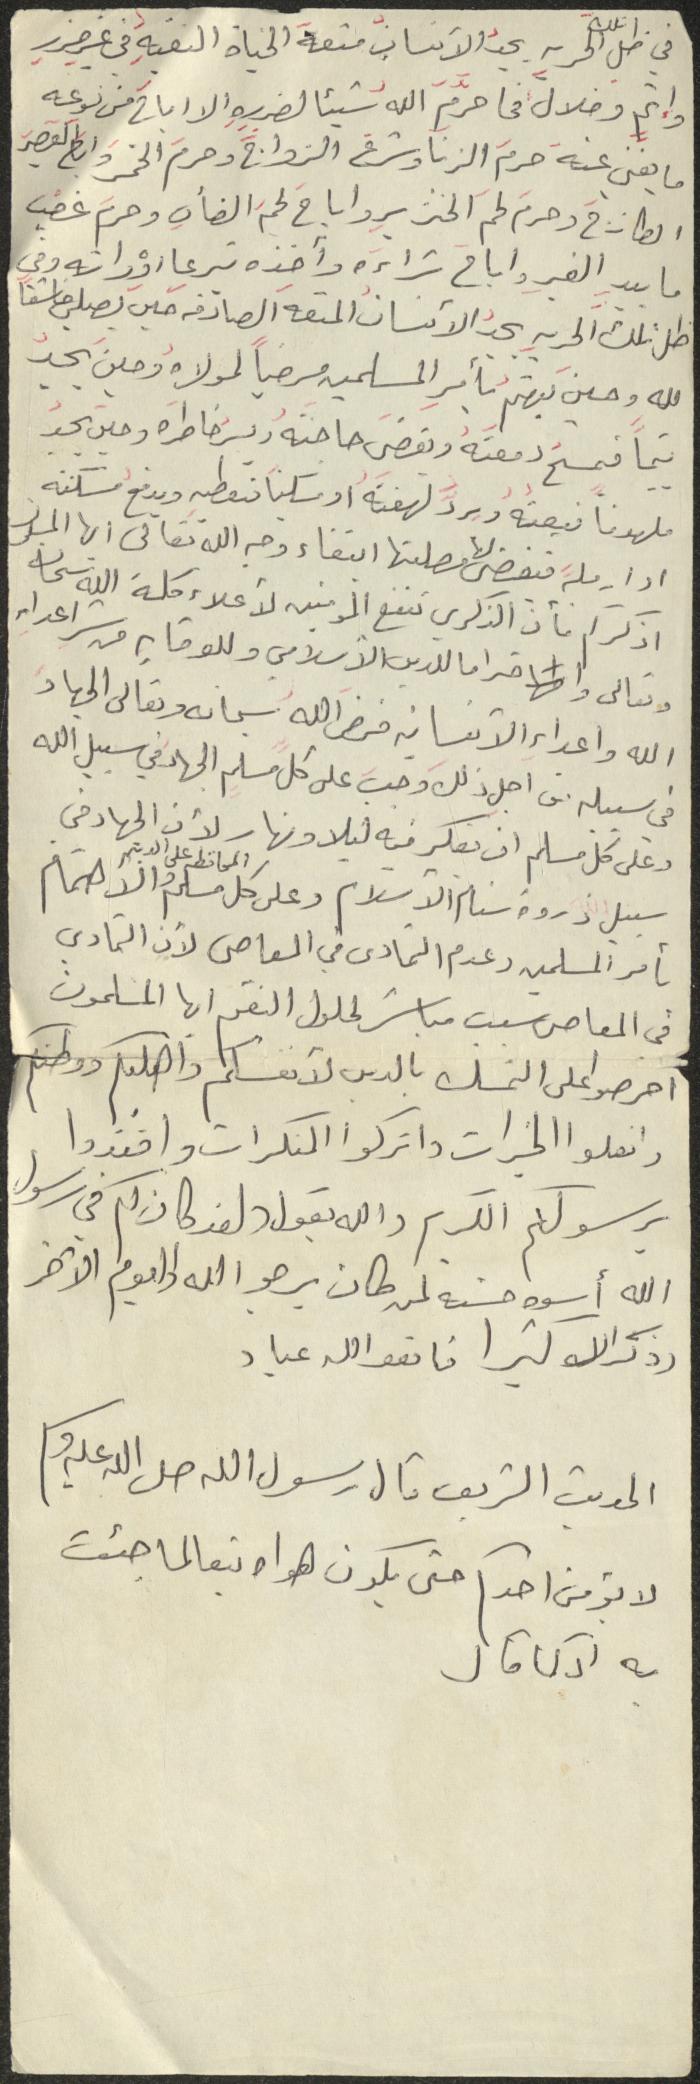 في ظل تلك الحرية يجدُ الأنسانُ متعةَ الحياة النقيةِ في غير ضررٍ
وإثمٍ وضلال فما حرَّمَ اللهُ شيئا لضررهِ إلا اباحَ من نوعه
ما يغني عنهُ حرمَ الزنا وشرعَ الزواجَ وحرمَ الخمرَ واباحَ العصيرَ
الطازجَ وحرمَ لحمَ الخنزيرِ واباحَ لحمَ الضأنِ وحرمَ غصبَ
ما بيدِ الغيرِ واباحَ شراءَه وأخذه تبرعا أو وراثه وفي
ظل تلك الحريه يجدُ الأنسانُ المتعه الصادقه حين يصلي خاشعاً
لله وحين يهتمُ بأمرِ المسلمين مرضياً لمولاهُ وحين يجدُ
يتيماً فيمسحُ دمعتَهُ ويقضيَ حاجتهُ ويسرُ خاطرَه وحين يجدُ
ملهوفاً فيغيثهُ ويردُ لهفتهُ او مسكيناً فيعطيه ويدفعُ مسكنته
او ارملةً فيقضي لها مصلحتها ابتغاء وجه الله تعالى ايها المسلمون
اذكركم فأن الذكرى تنفع المؤمنين لأعلاء كلمة الله سبحانه
وتعالى واحتراما للدين الأسلامي وللوقايه من شر اعداءِ
الله واعداءِ الأنسانيه فرضَ اللهُ سبحانه وتعالى الجهادَ
في سبيله من اجلِ ذلكَ وجبَ على كلِ مسلمٍ الجهاد في سبيل الله
وعلى كل مسلم ان يفكر فيه ليلا ونهار لأن الجهاد في
سبيل الله ذروة سنام الأسلام وعلى كل مسلم المحافظه على الدين والأهتمام
بأمر المسلمين وعدم التمادى في المعاصى لأن التمادي
فى المعاصى سبب مباشر لحلول النقم ايها المسلمون
احرصوا على التمسك بالدين لأنفسكم وأهليكم ووطنكم
وافعلوا الخيرات واتركوا المنكرات واقتدوا
برسولكم الكريم والله يقول ولقد كان لكم في رسول
الله أسوه حسنه لمن كان يرجو الله واليوم الآخر
وذكر الله كثيرا فاتقوا الله عباد
الحديث الشريف قال رسول الله صلى الله عليه وسلم
لا يؤمن احدكم حتى يكون هواه تبعا لما جئت
به او كما قال